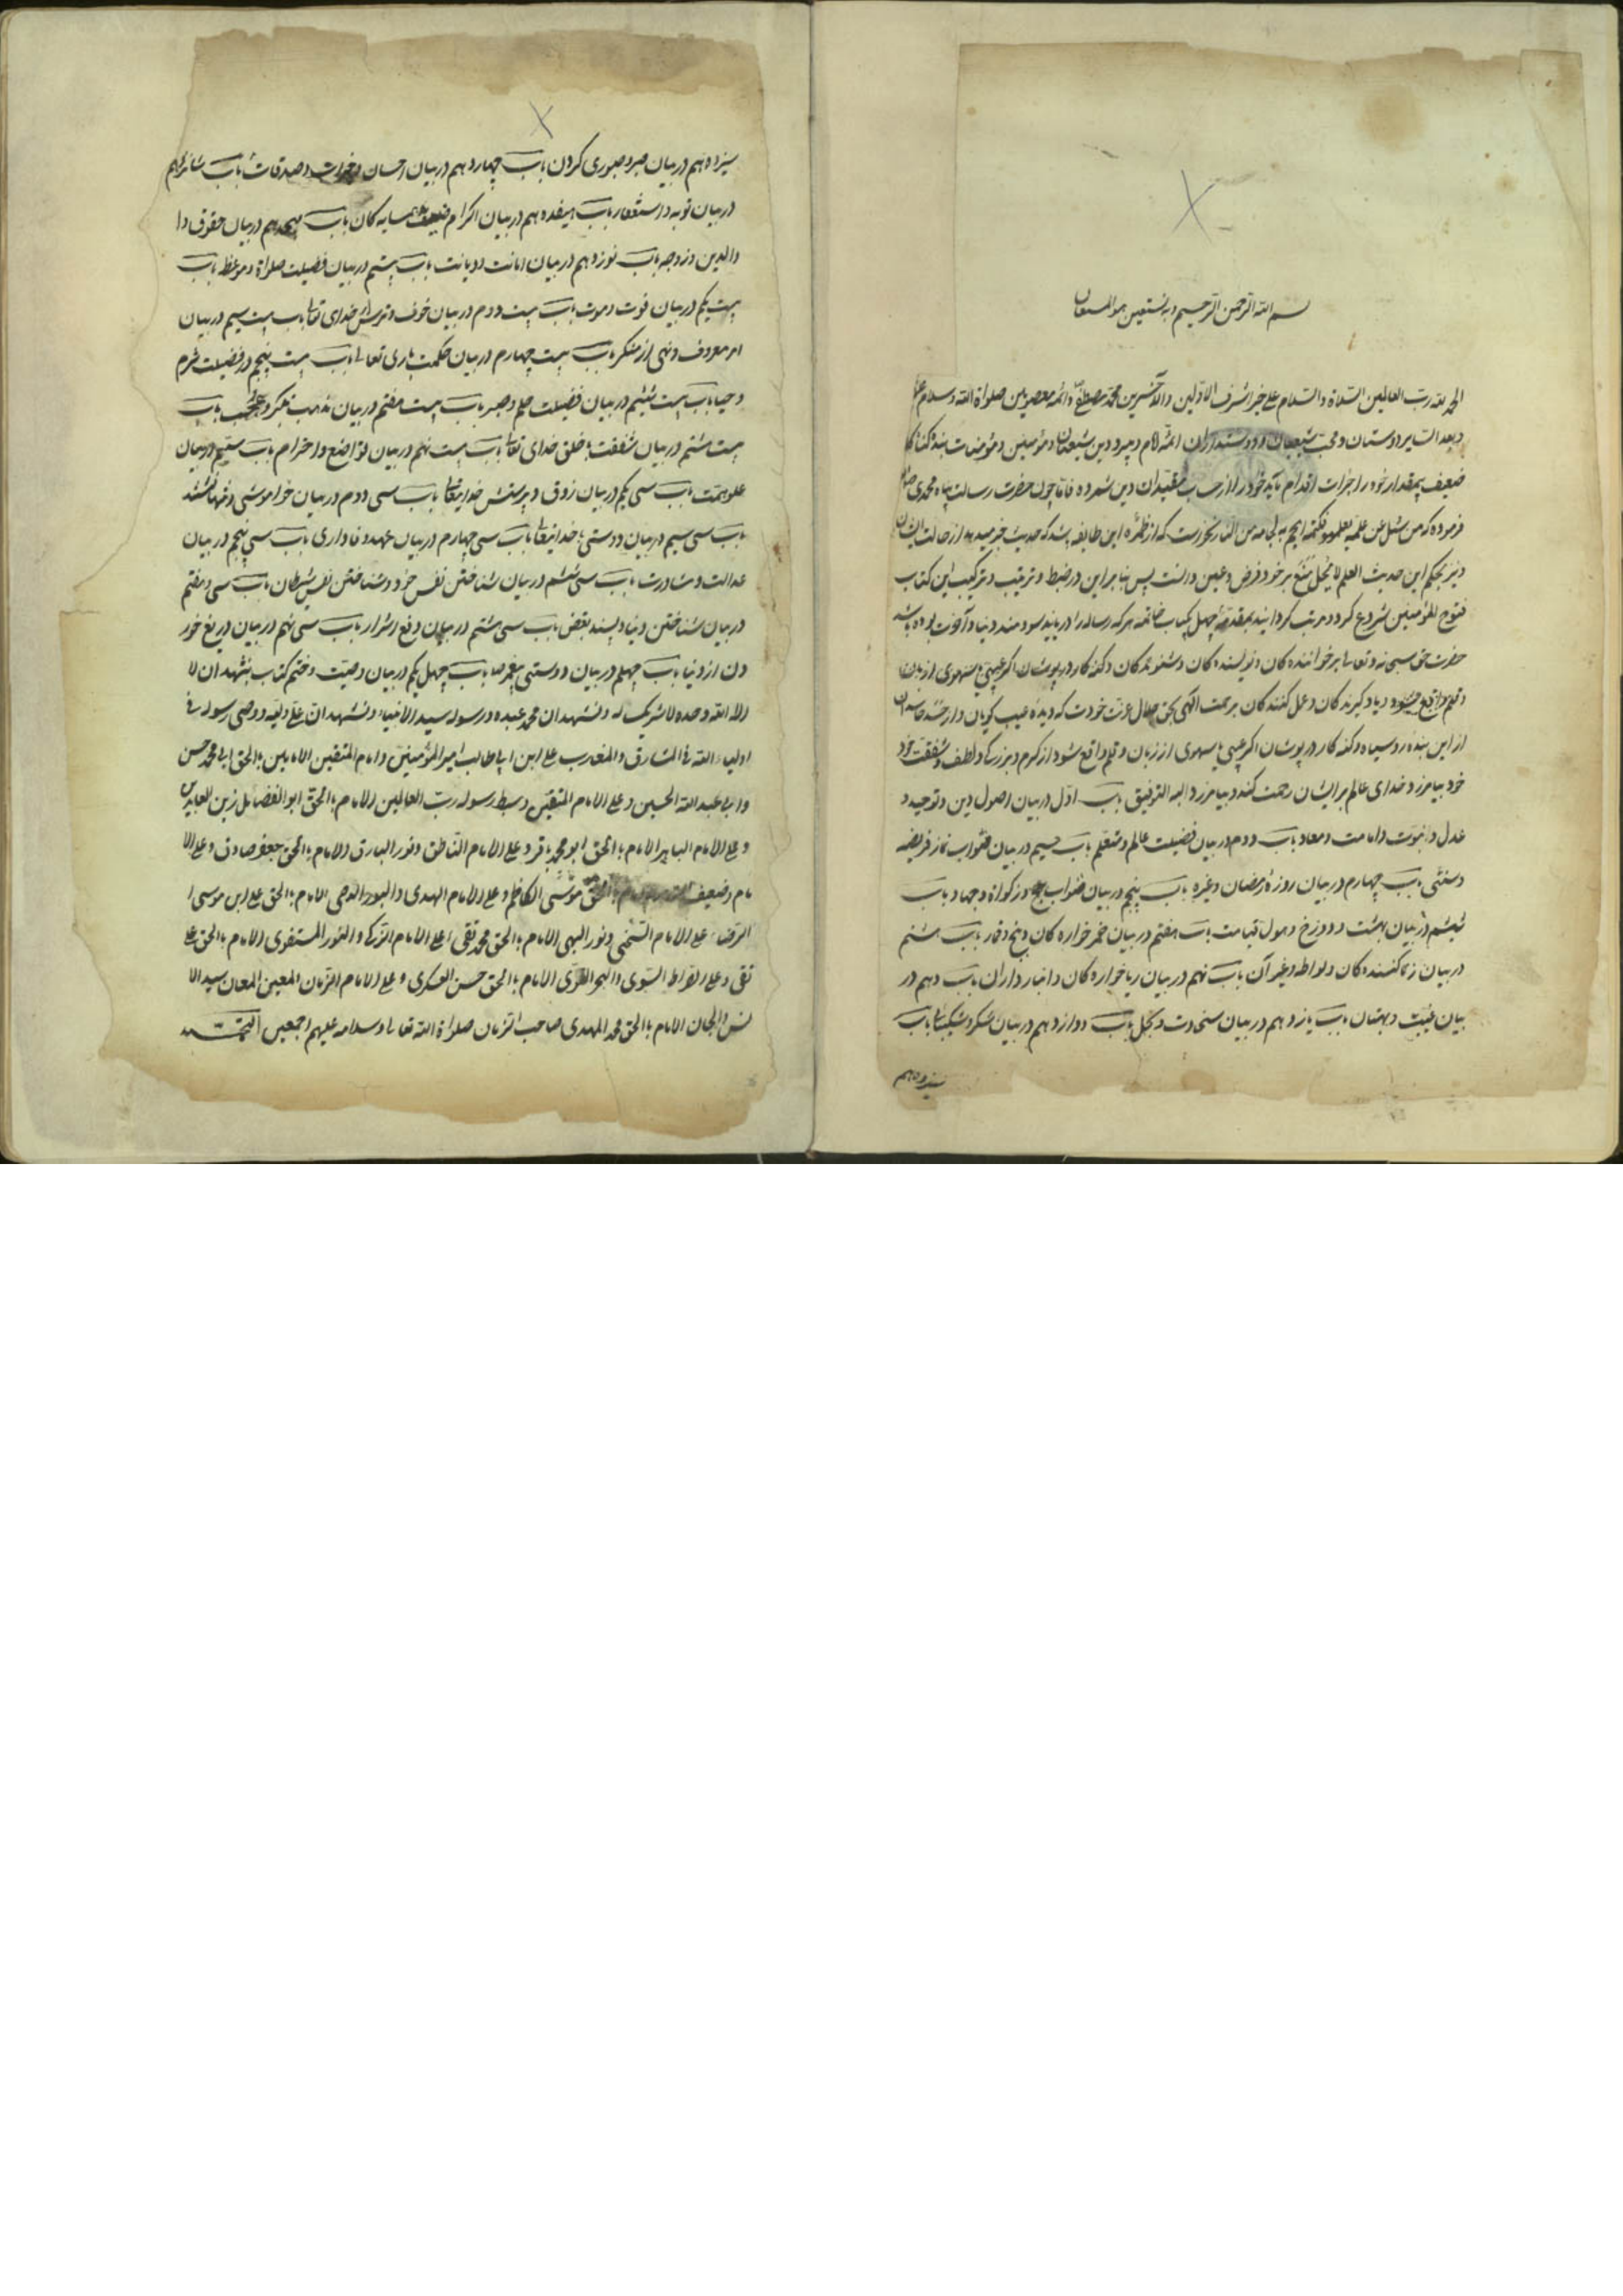 بسم الله الرحمن الرحیم وبه نستعین هو المستعان
الحمد لله رب العالمین الصلاة والسلام علی خیر اشرف الاولین والآخرین محمد مصطفی و ائمه معصومین صلواة الله وسلام
وبعد دوستان ومحب شیعیان ودوستداران ائمه و پیرو دین شیعیان ومؤمنین ومؤمنات بنده
ضعیف بمقدار خود را جرات اقدام خود را از حساب مقیدان دین شمرده فاما چون حضرت رسالت پناه محمدی
فرموده که من سئل عن علم یعلمه فکتمه الجم بلجامه من النار که از این طایفه باشد که حدیث خبر میدهد از حالت ایشان
ونیز بحکم این حدیث العلم لا یحل منع بر خود فرض وعین دانست پس بنابراین در ضبط وترتیب وترکیب این کتاب
فتوح المؤمنین شروع کرد ومرتب گردانید بمقدمه چهل یکباب خاتمه هر که رساله را دریابد سودمند دنیا وآخرت بوده باشد
حضرت حق سبحانه وتعالی بر خواننده کان ونویسنده کان وشنونده کان وگنه کار در پوشان اگر عیبی سهوی از زبان
وقلم واقع شود ویاد گیرنده کان وعمل کنندکان برحمت الهی بحق جلال عزت خودت که دیده عیب گویان
از این بنده روسیاه وگنه کار در پوشان اگر عیبی یا سهوی از زبان وقلم واقع شود از کرم وبزرگی ولطف وشفقت خود
خود بیامرزد خدای عالم بر ایشان رحمت کند وبیامرزد وبالله التوفیق باب اول در بیان اصول دین وتوحید و
عدل ونبوت وامامت ومعاد باب دوم در بیان فضیلت عالم ومتعلم باب سیم در بیان ثواب نماز فریضه
وسنتی باب چهارم در بیان روزه رمضان وغیره باب پنجم در بیان ثواب حج وزکواة وجهاد باب
ششم در بیان بهشت ودوزخ وهول قیامت باب هفتم در بیان خمر خواره کان وبنج وقمار باب هشتم
در بیان زنا کننده کان ولواطه وغیر آن باب نهم در بیان ربا خواره کان وانبار داران باب دهم در
بیان غیبت وبهتان باب یازدهم در بیان سخاوت وبخل باب دوازدهم در بیان شکر وشکیبائی باب
سیزدهم
سیزده هم در بیان صبر وصبوری کردن باب چهاردهم در بیان احسان وخیرات وصدقات باب شانزدهم
در بیان توبه واستغفار باب هیفده هم در بیان اکرام ضیف همسایه کان باب هیجدهم در بیان حقوق وا
والدین وزوجه باب نوزدهم در بیان امانت ودیانت باب بیستم در بیان فضیلت صلواة وموعظه باب
بیست یکم در بیان فوت وموت باب بیست ودوم در بیان خوف وترس از خدای تعالی باب بیست سیم در بیان
امر معروف ونهی از منکر باب بیست چهارم در بیان حکمت باری تعالی باب بیست پنجم در فضیلت شرم
وحیا باب بیست ششم در بیان فضیلت حلم وصبر باب بیست هفتم در بیان مذمت تکبر وعجب باب
بیست هشتم در بیان شفقت بخلق خدای تعالی باب بیست نهم در بیان تواضع واحترام باب سیم در بیان
علو همت باب سی یکم در بیان ذوق وپرستش خدایتعالی باب سی ودوم در بیان خواموشی وتنها نشتند
باب سی سیم در بیان دوستی با خدایتعالی باب سی چهارم در بیان عهد وفاداری باب سی پنجم در بیان
عدالت ومشاورت باب سی ششم در بیان شناختن نفس خود وشناختن نفس شیطان باب سی وهفتم
در بیان شناختن دنیا وپسند بعض باب سی هشتم در بیان دفع اشرار باب سی نهم در بیان دریغ خور
دن از دنیا باب چهلم در بیان دوستی پیغمبر ص باب چهل یکم در بیان وصیت وختم کتاب نشهد ان لا
اله الا الله وحده لا شریک له ونشهد ان محمد عبده ورسوله سید الانبیاء ونشهد ان علی ولیه ووصی رسوله فی
اولیاء الله فی المشارق والمغارب علی ابن ابی طالب امیر المؤمنین وامام المتقین الامامین بالحق ابی محمد حسن
وابی عبد الله الحسین وعلی الامام المتقین وسبط رسول رب العالمین الامام بالحق ابو الفضائل زین العابدین
وعلی الامام الباهر الامام بالحق ابو محمد باقر وعلی الامام الناطق ونور البارق الامام بالحق جعفر صادق وعلی الا
مام وضعیف بالحق موسی الکاظم وعلی الامام الهدی والبدر الدجی الامام بالحق علی ابن موسی ا
الرضاء وعلی الامام السخی ونور البهی الامام بالحق محمد تقی وعلی الامام الزکی والنور المستقوی الامام بالحق علی
نقی وعلی الصراط السوی والبحر القوی الامام بالحق حسن العسکری وعلی الامام الزمان المعین المعان سید الا
نس والجان الامام بالحق محمد المهدی صاحب الزمان صلواة الله تعالی وسلامه علیهم اجمعین